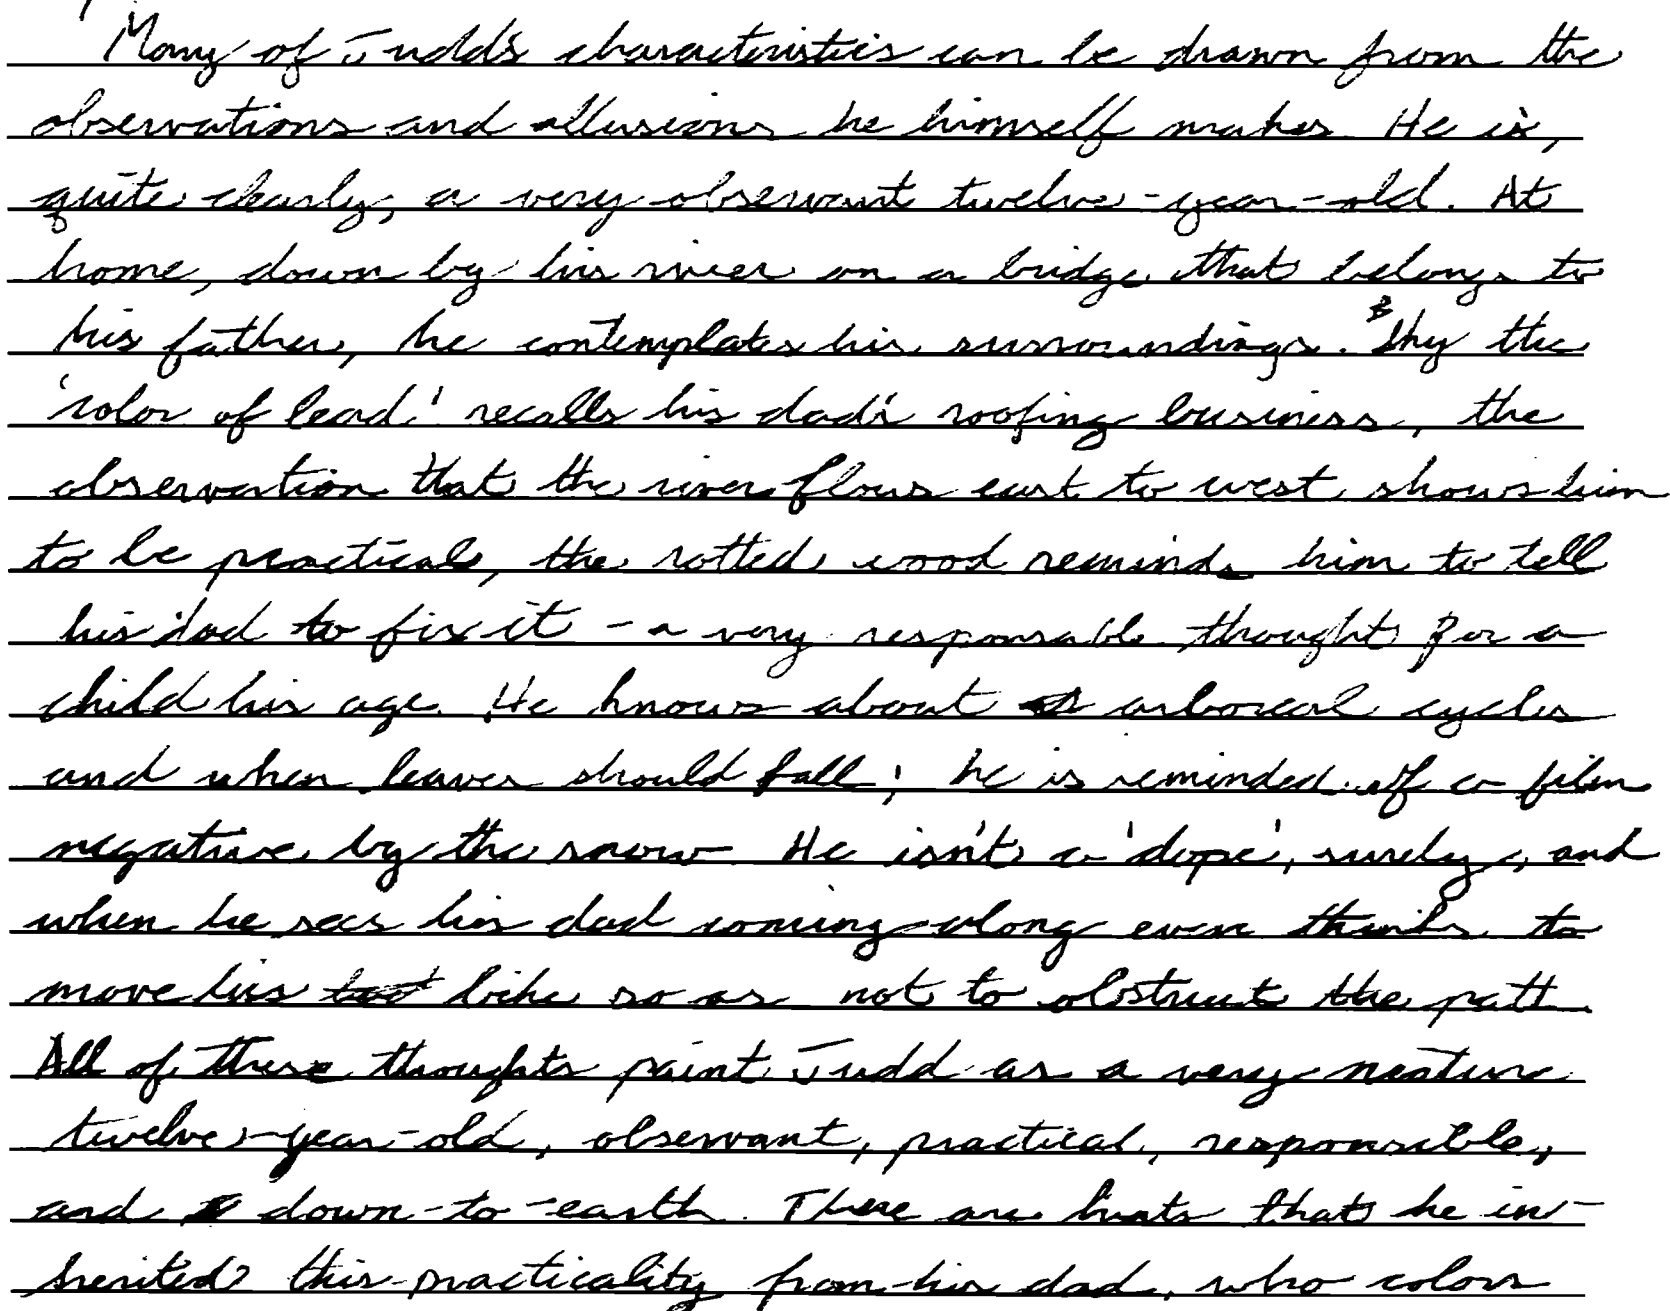 Many of Judd's characteristics can be drawn from the
observations and allusions he himself makes. He is,
quite clearly, a very observant twelve-year-old. At
home, down by his river on a bridge that belongs to
his father, he contemplates his surroundings. Sky the
'color of lead' recalls his dad's roofing business, the
observation that the river flows east to west shows him
to be practical, the rotted wood reminds him to tell
his dad to fix it - a very responsable thought for a
child his age. He knows about arboreal cycles
and when leaves should fall; he is reminded of a film
negative by the snow. He isn't a 'dope', surely, and
when he sees his dad coming along even thinks to
move his bike so as not to obstruct the path.
All of these thoughts paint Judd as a very mature
twelve-year-old, observant, practical, responsible,
and down-to-earth. There are hints that he in-
herited this practicality from his dad, who colors